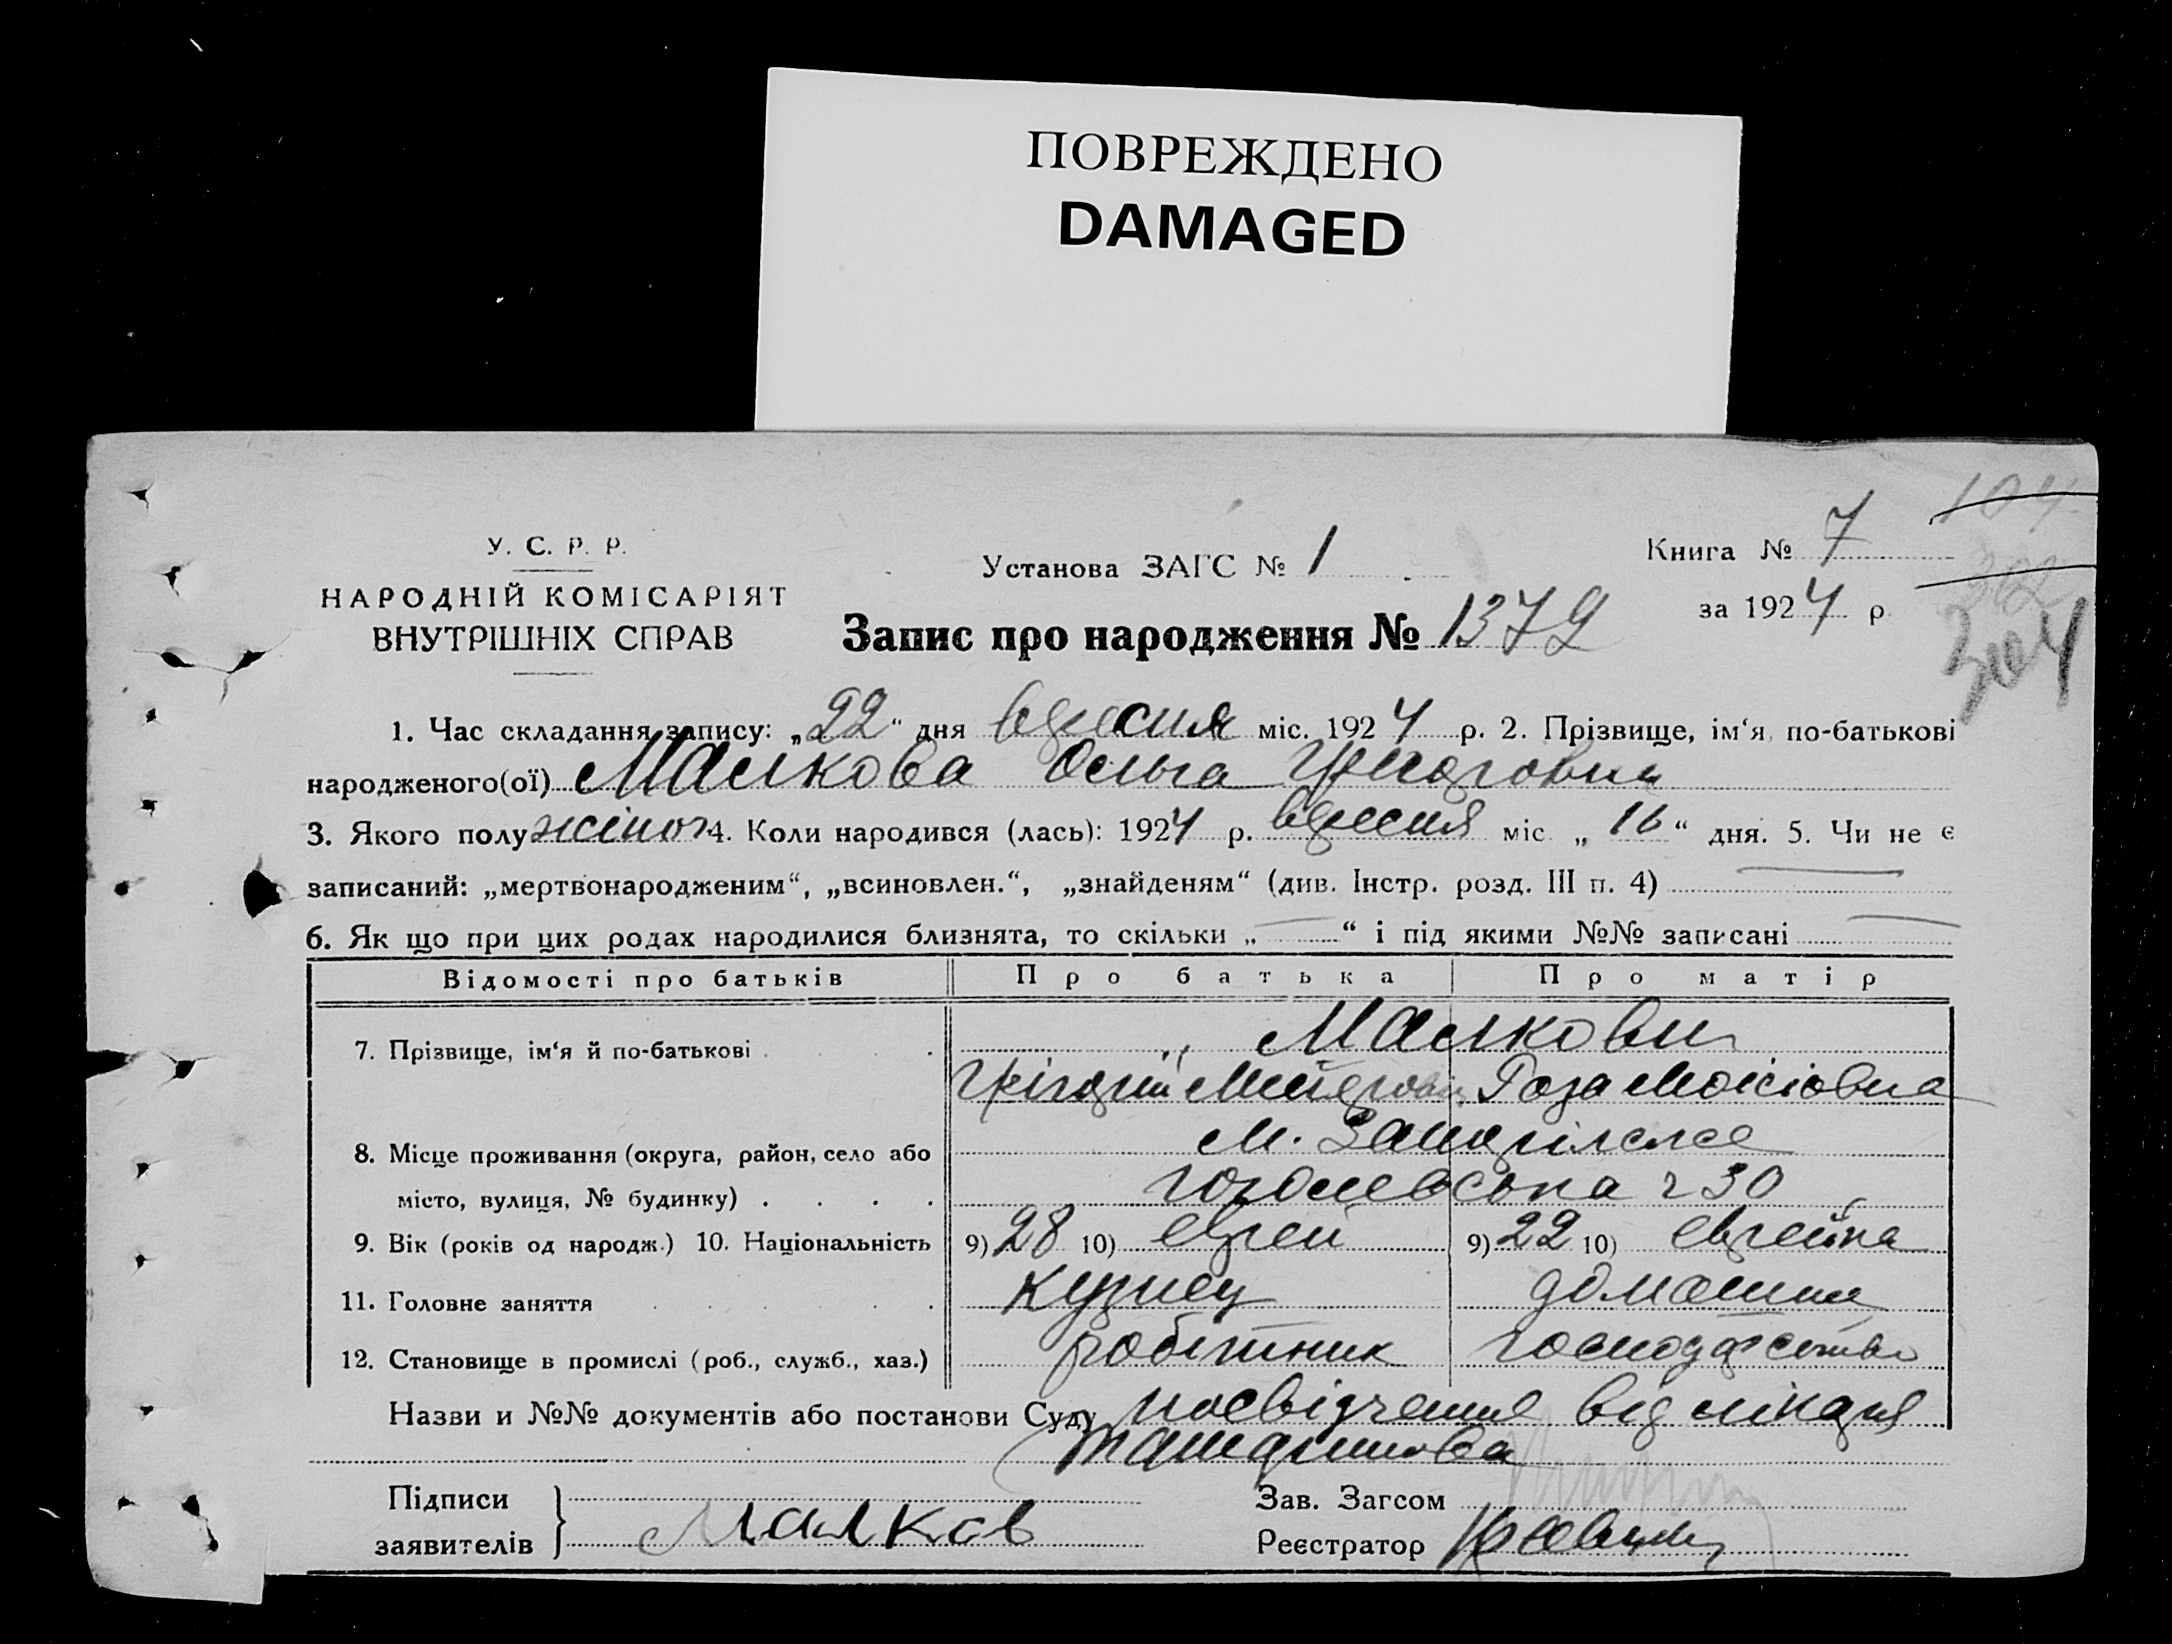 ПОВРЕЖДЕНО
DAMAGED
104
302
304
У. С. Р. Р.
НАРОДНІЙ КОМІСАРІЯТ
ВНУТРІШНІХ СПРАВ
Установа ЗАГС № 1
Запис про народження № 1379
Книга № 7
за 1924 р.
1. Час складання запису: „22“ дня вересня міс. 1924 р. 2. Прізвище, ім‘я, по-батькові
народженого(ої) Малкова Ольга
3. Якого полу жіноч 4. Коли народився (лась): 1924 р. вересня міс. „16“ дня. 5. Чи не є
записаний: „мертвонародженим“, „всиновлен.“, „знайденям“ (див. Інстр. розд. III п. 4)
6. Як що при цих родах народилися близнята, то скільки „—“ і під якими №№ записані —
Відомості про батьків Про батька Про матір
7. Прізвище, ім‘я й по-батькові Малкови
Грігорий Роза Моисіовна
8. Місце проживання (округа, район, село або м.
місто, вулиця, № будинку) 30
9. Вік (років од народж.) 10. Національність 9) 28 10) еврей 9) 22 10) еврейка
11. Головне заняття кузнец домашнє
12. Становище в промислі (роб., служб., хаз.) робітник господарство
Назви и №№ документів або постанови Суду посвідчення від лікаря
Підписи
заявителів Малков
Зав. Загсом
Реєстратор